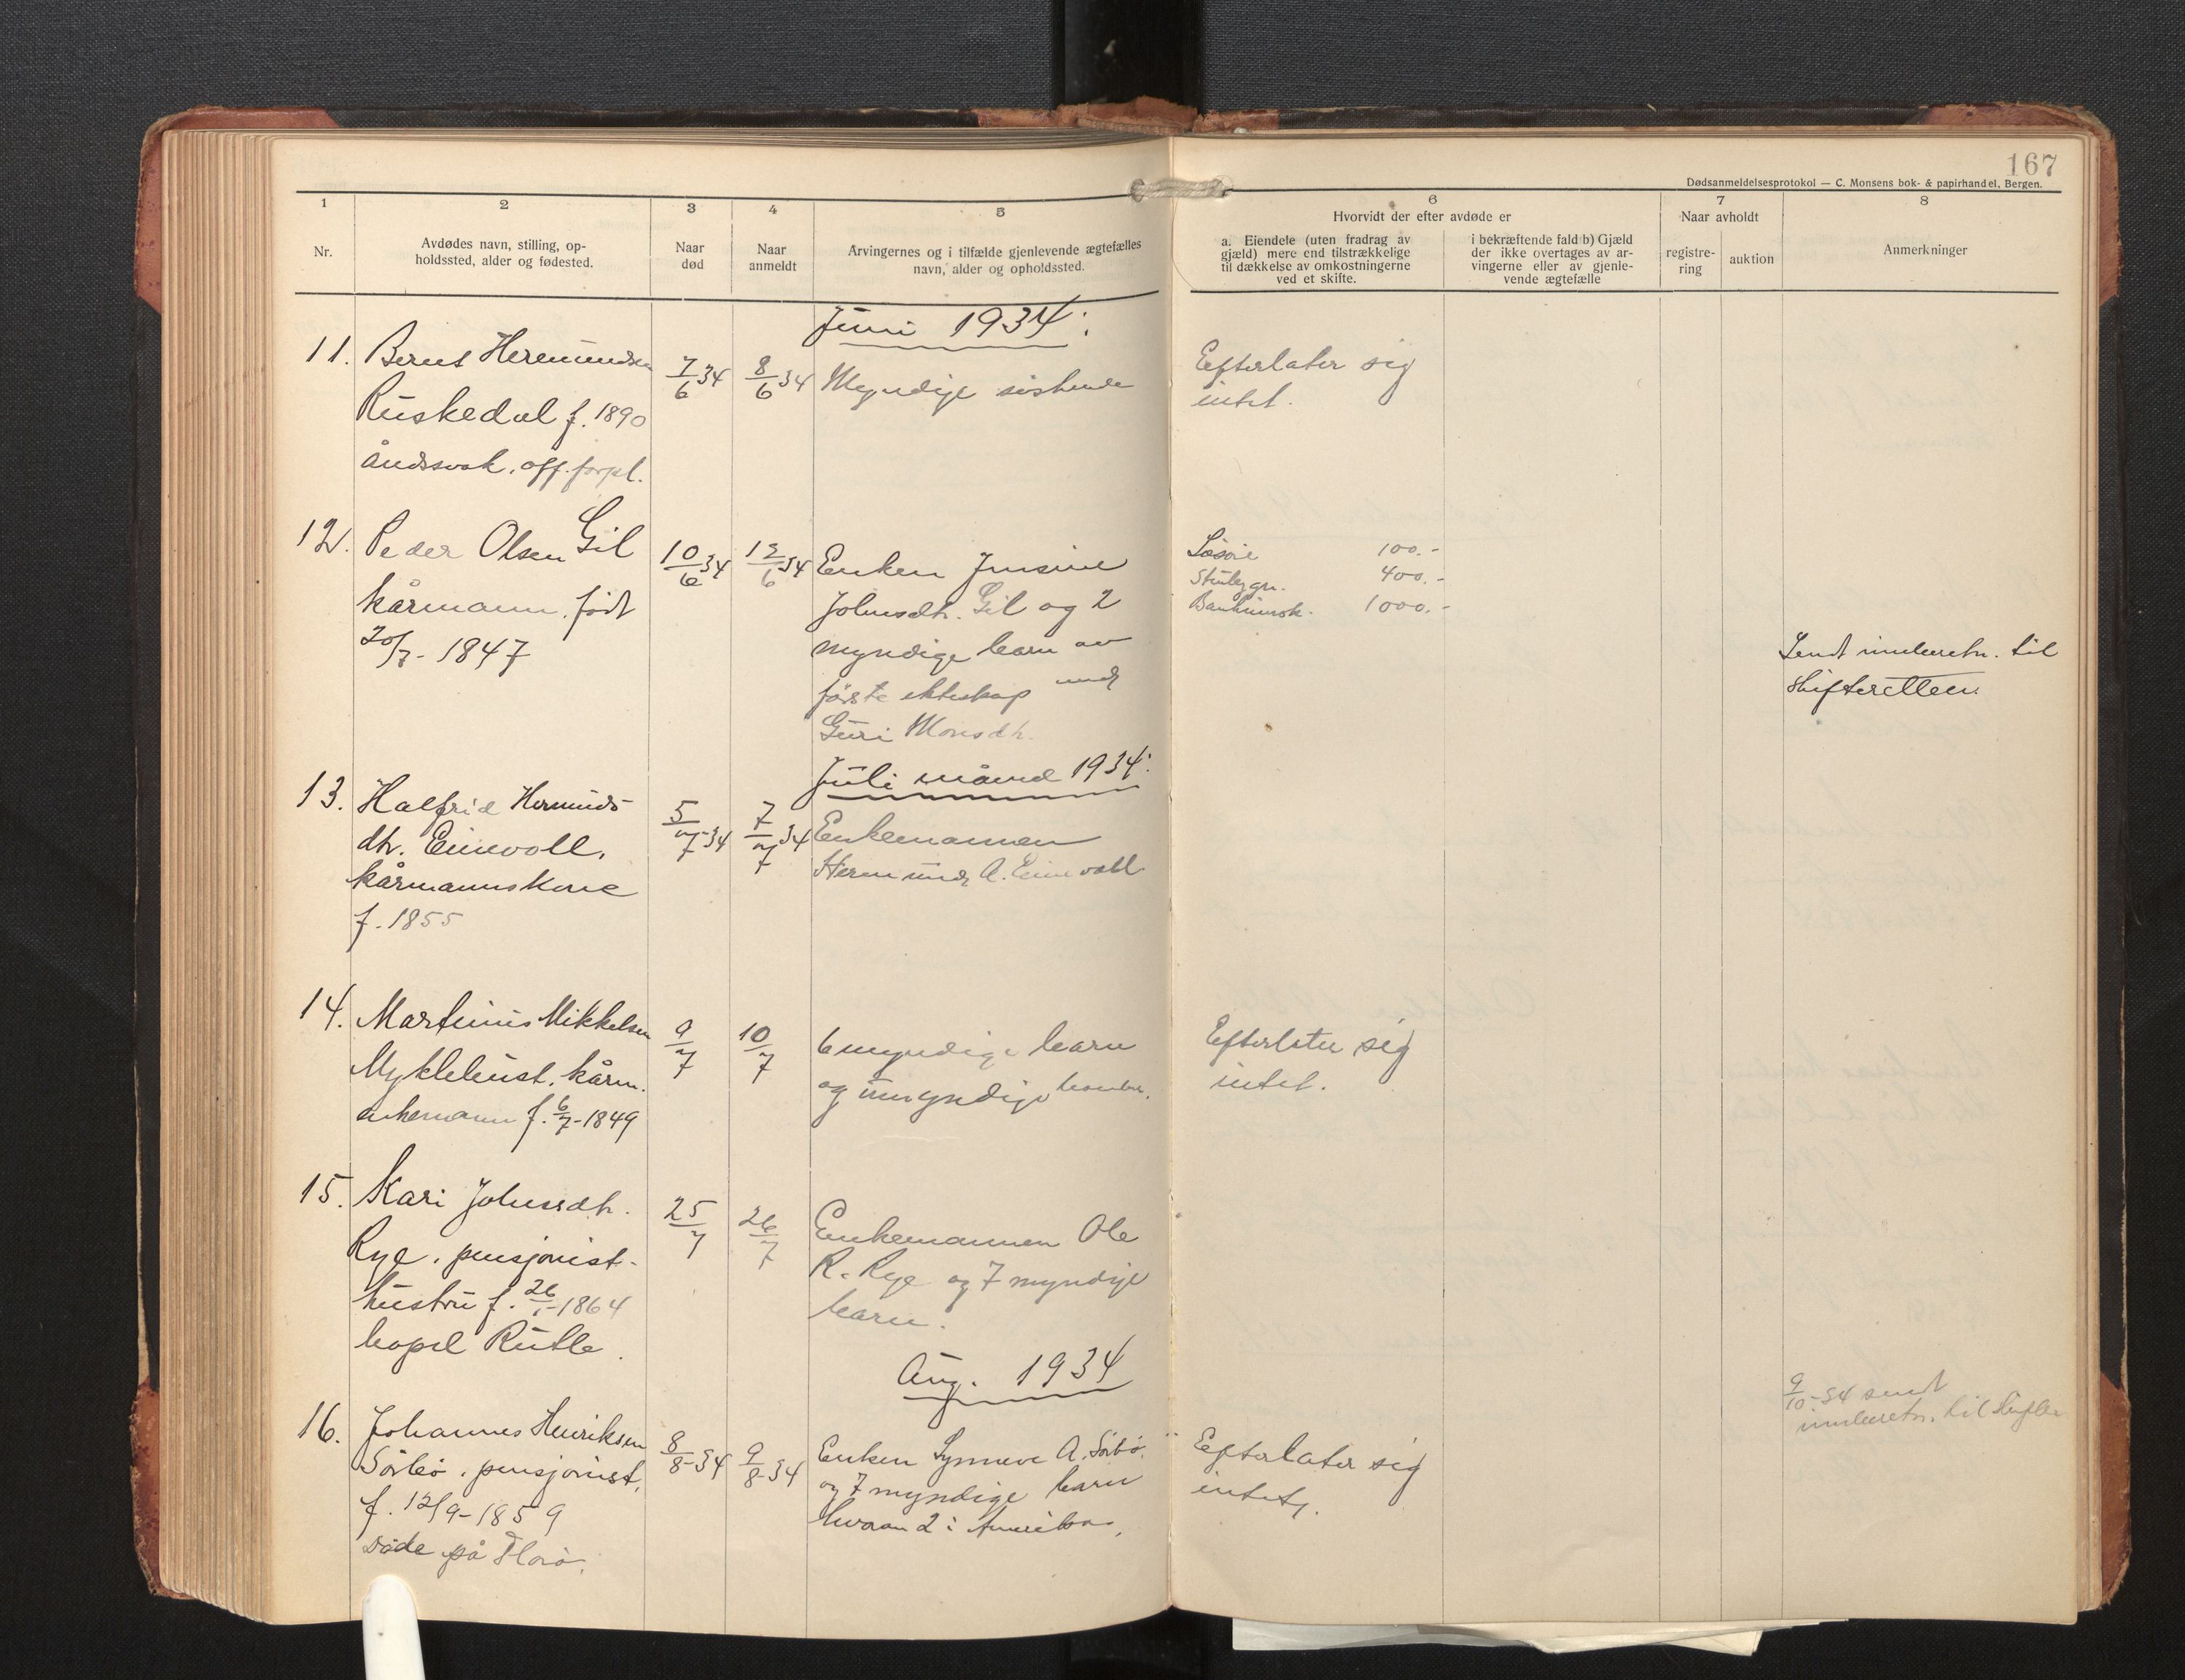 167
Dødsanmeldelsesprotokol — C. Monsens bok- & papirhandel, Bergen.
1
2
3
4
5
6
7
8
Nr.
Avdødes navn, stilling, op-
holdssted, alder og fødested.
Naar
død
Naar
anmeldt
Arvingernes og i tilfælde gjenlevende ægtefælles
navn, alder og opholdssted.
Hvorvidt der efter avdøde er
a. Eiendele (uten fradrag av
gjæld) mere end tilstrækkelige
til dækkelse av omkostningerne
ved et skifte.
i bekræftende fald b) Gjæld
der ikke overtages av ar-
vingerne eller av gjenle-
vende ægtefælle
Naar avholdt
registre-
ring
auktion
Anmerkninger
Juni 1934:
11. Bernt Heremundsen
Ruskedal f. 1890
åndssvak. off. forpl.
7/6 34
8/6 34
Myndige søskende
Efterlater sig
intet.
12. Peder Olsen Gil
kårmann. født
20/7- 1847
10/6 34
12/6 34
Enken Jensine
Johnsdtr. Gil og 2
myndige barn av
første ekteskap med
Guri Monsdtr.
Løsøre 100.-
400.-
Bankinnsk. 1000.-
Sendt innberetn. til
skifteretten
Juli måned 1934:
13. Halfrid Hermunds-
dtr. Einevoll.
kårmannskone
f. 1855
5/7-34
7/7 34
Enkemannen
Heremund A. Einevoll
14. Martinus Mikkelsen
Myklebust. kårm.
enkemann f. 6/7-1849
9/7
10/7
6 myndige barn
og umyndige barnebarn.
Efterlater sig
intet.
15. Kari Johnsdtr.
Rye. pensjonist-
hustru f. 26/1-1864
bopel Rutle.
25/7
26/7
Enkemannen Ole
R. Rye og 7 myndige
barn.
Aug. 1934
16. Johannes Henriksen
Sørbø. pensjonist.
f. 12/9-1859
døde på Florø.
8/8-34
9/8-34
Enken Synneve A. Sørbø.
og 7 myndige barn
hvorav 2 i Amerika.
Efterlater sig
intet.
9/10-34 sendt
innberetn. til skifter